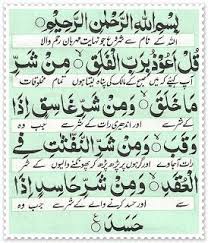 بِسْمِ اللّٰهِ الرَّحْمٰنِ الرَّحِيْمِ
اللہ کے نام سے شروع جو نہایت مہربان رحم والا
قُلْ اَعُوْذُ بِرَبِّ الْفَلَقِ ○ مِنْ شَرِّ
آپ کہئے کہ میں صبح کے مالک کی پناہ لیتا ہوں تمام مخلوقات
مَا خَلَقَ ○ وَمِنْ شَرِّ غَاسِقٍ اِذَا
کے شر سے اور اندھیری رات کے شر سے جب وہ
وَقَبَ ○ وَمِنْ شَرِّ النَّفّٰثٰتِ فِي
رات آجاوے اور گرہوں پر پڑھ پڑھ کر پھونکنے والیوں کے شر
الْعُقَدِ ○ وَمِنْ شَرِّ حَاسِدٍ اِذَا
سے اور حسد کرنے والے کے شر سے جب وہ
حَسَدَ ○